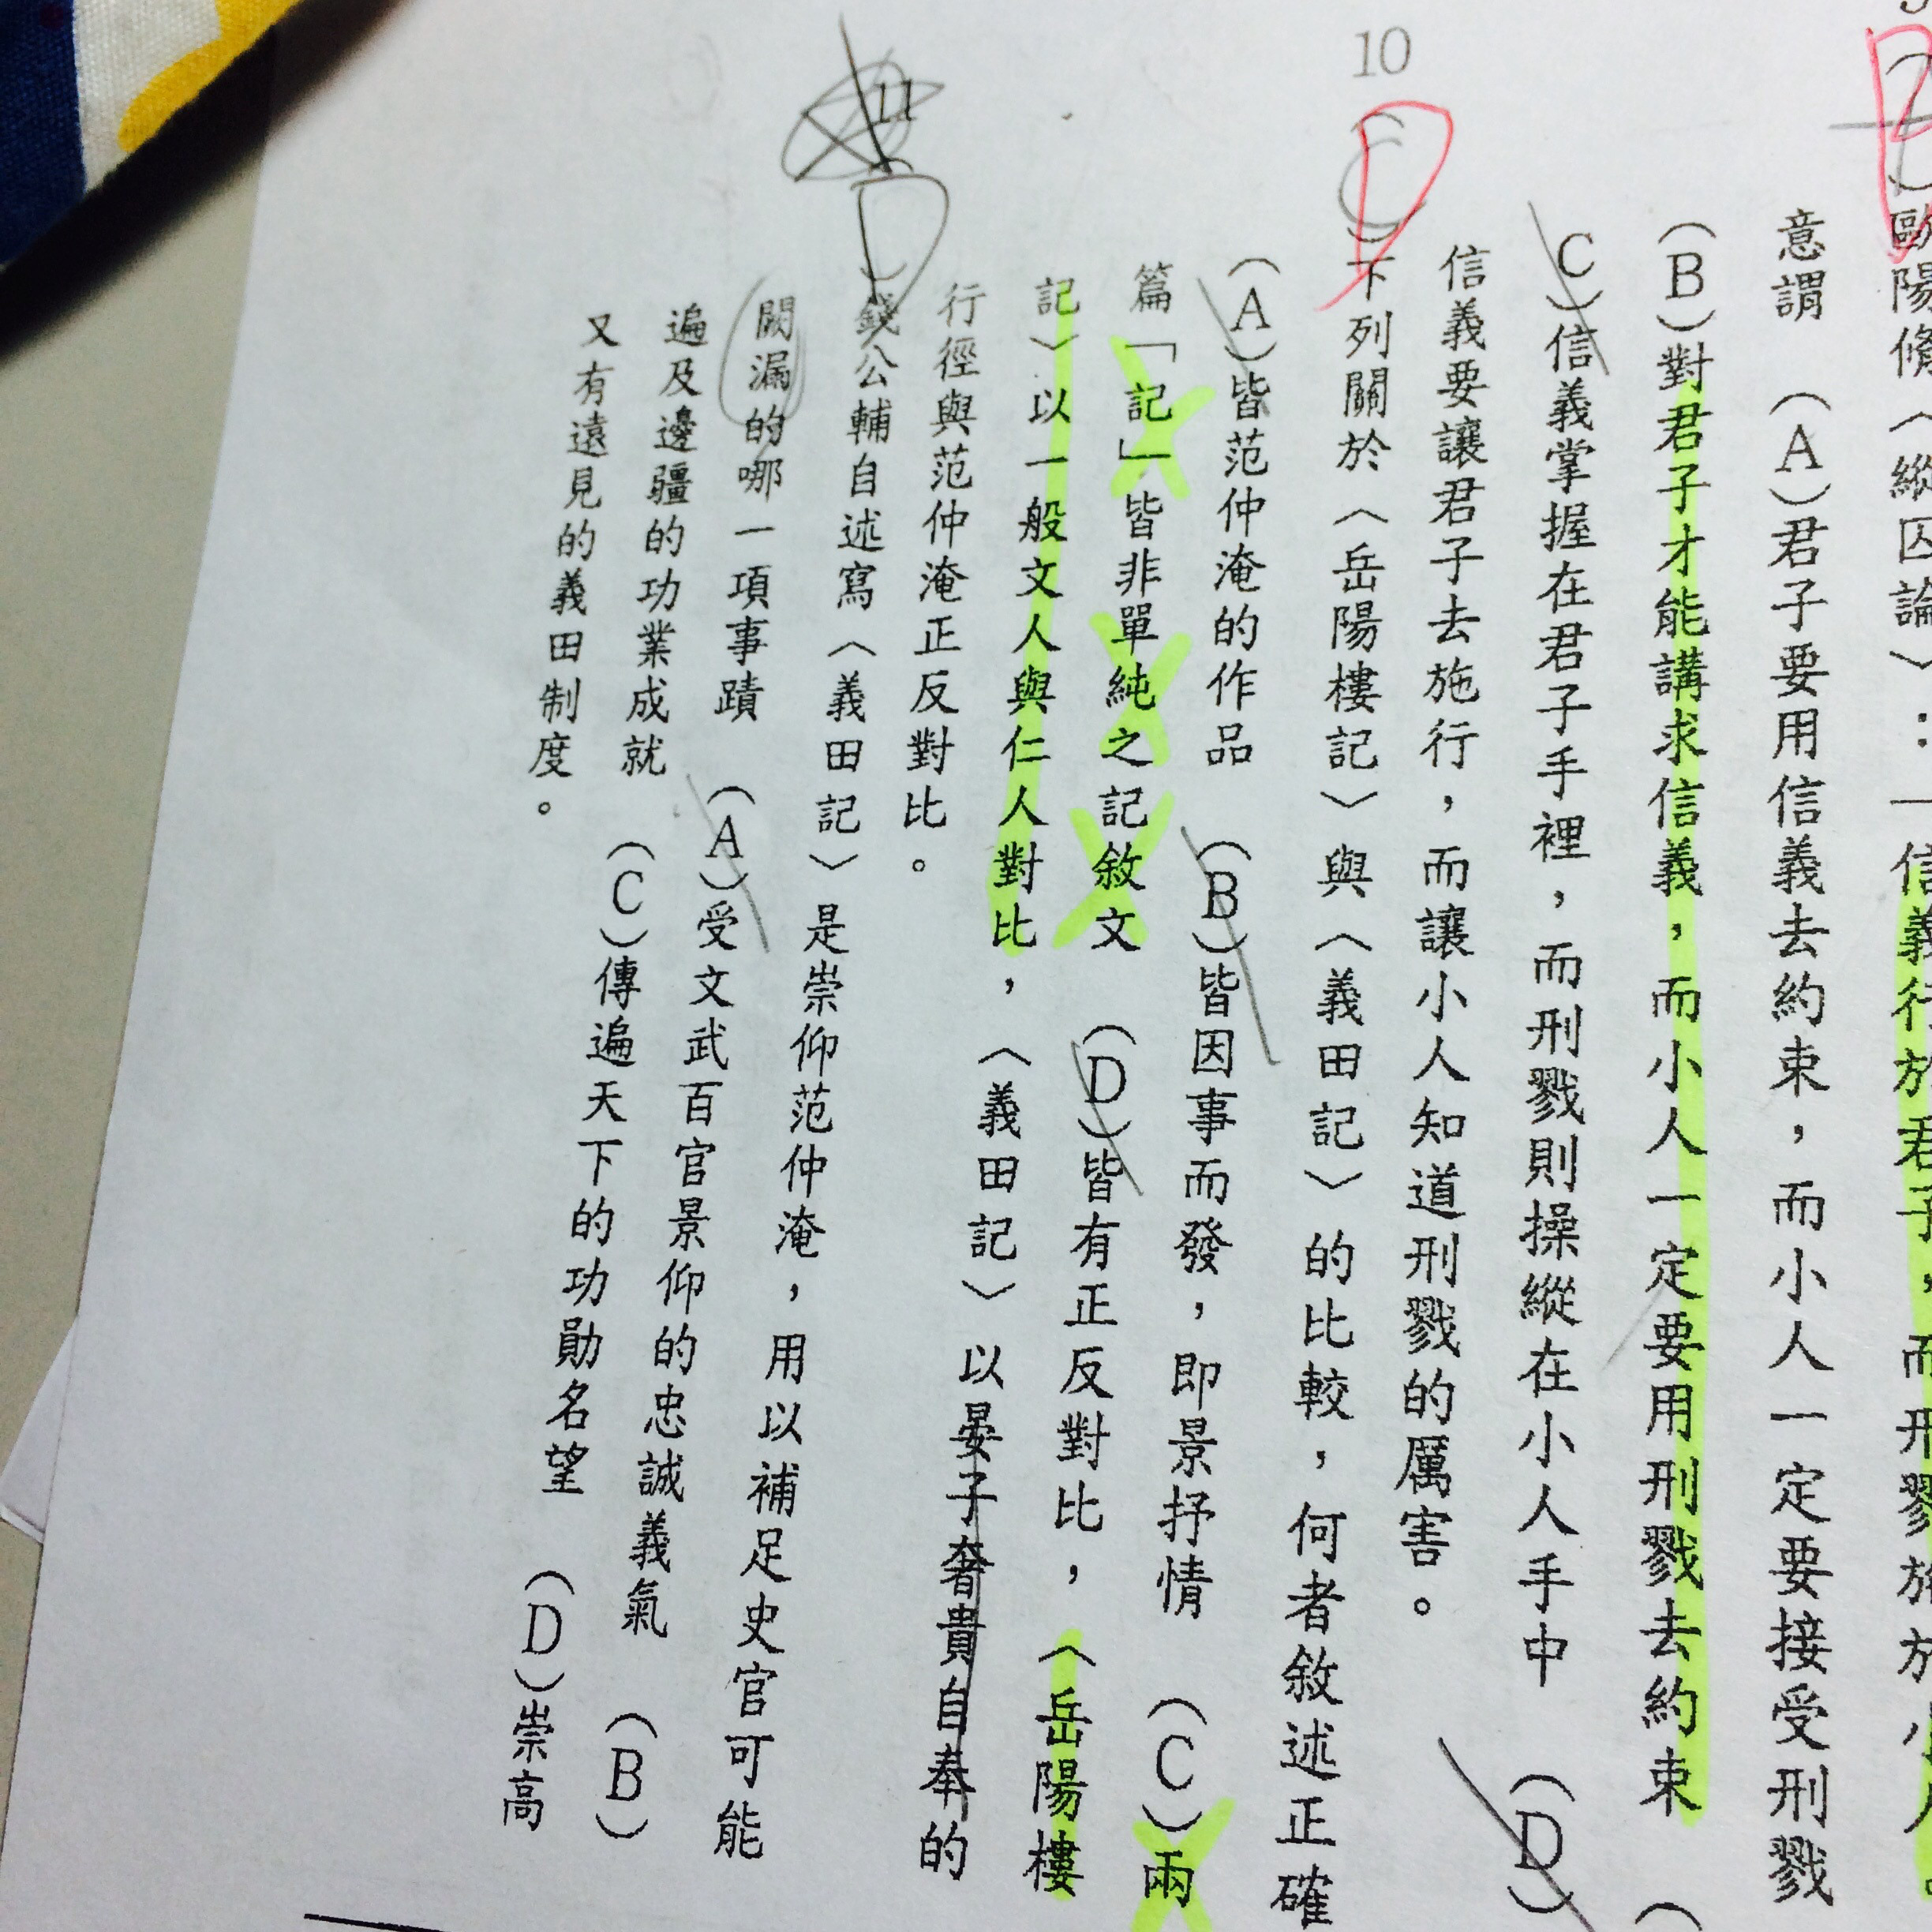 歐陽脩〈縱囚論〉：「信義行於君子，而刑戮施於小人。
意謂　（A）君子要用信義去約束，而小人一定要接受刑戮　（
B）對君子才能講求信義，而小人一定要用刑戮去約束
C）信義掌握在君子手裡，而刑戮則操縱在小人手中　（D）
信義要讓君子去施行，而讓小人知道刑戮的厲害。
10（C）D下列關於〈岳陽樓記〉與〈義田記〉的比較，何者敘述正確
（A）皆范仲淹的作品　（B）皆因事而發，即景抒情　（C）兩
篇「記」皆非單純之記敘文　（D）皆有正反對比，〈岳陽樓
記〉以一般文人與仁人對比，〈義田記〉以晏子奢貴自奉的
行徑與范仲淹正反對比。
11（D）錢公輔自述寫〈義田記〉是崇仰范仲淹，用以補足史官可能
闕漏的哪一項事蹟　（A）受文武百官景仰的忠誠義氣　（B）
遍及邊疆的功業成就　（C）傳遍天下的功勛名望　（D）崇高
又有遠見的義田制度。